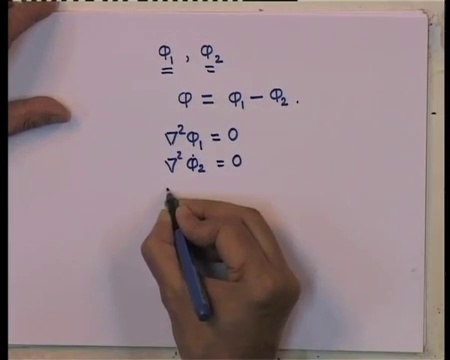 φ₁ , φ₂
φ = φ₁ − φ₂ .
∇²φ₁ = 0
∇²φ₂ = 0